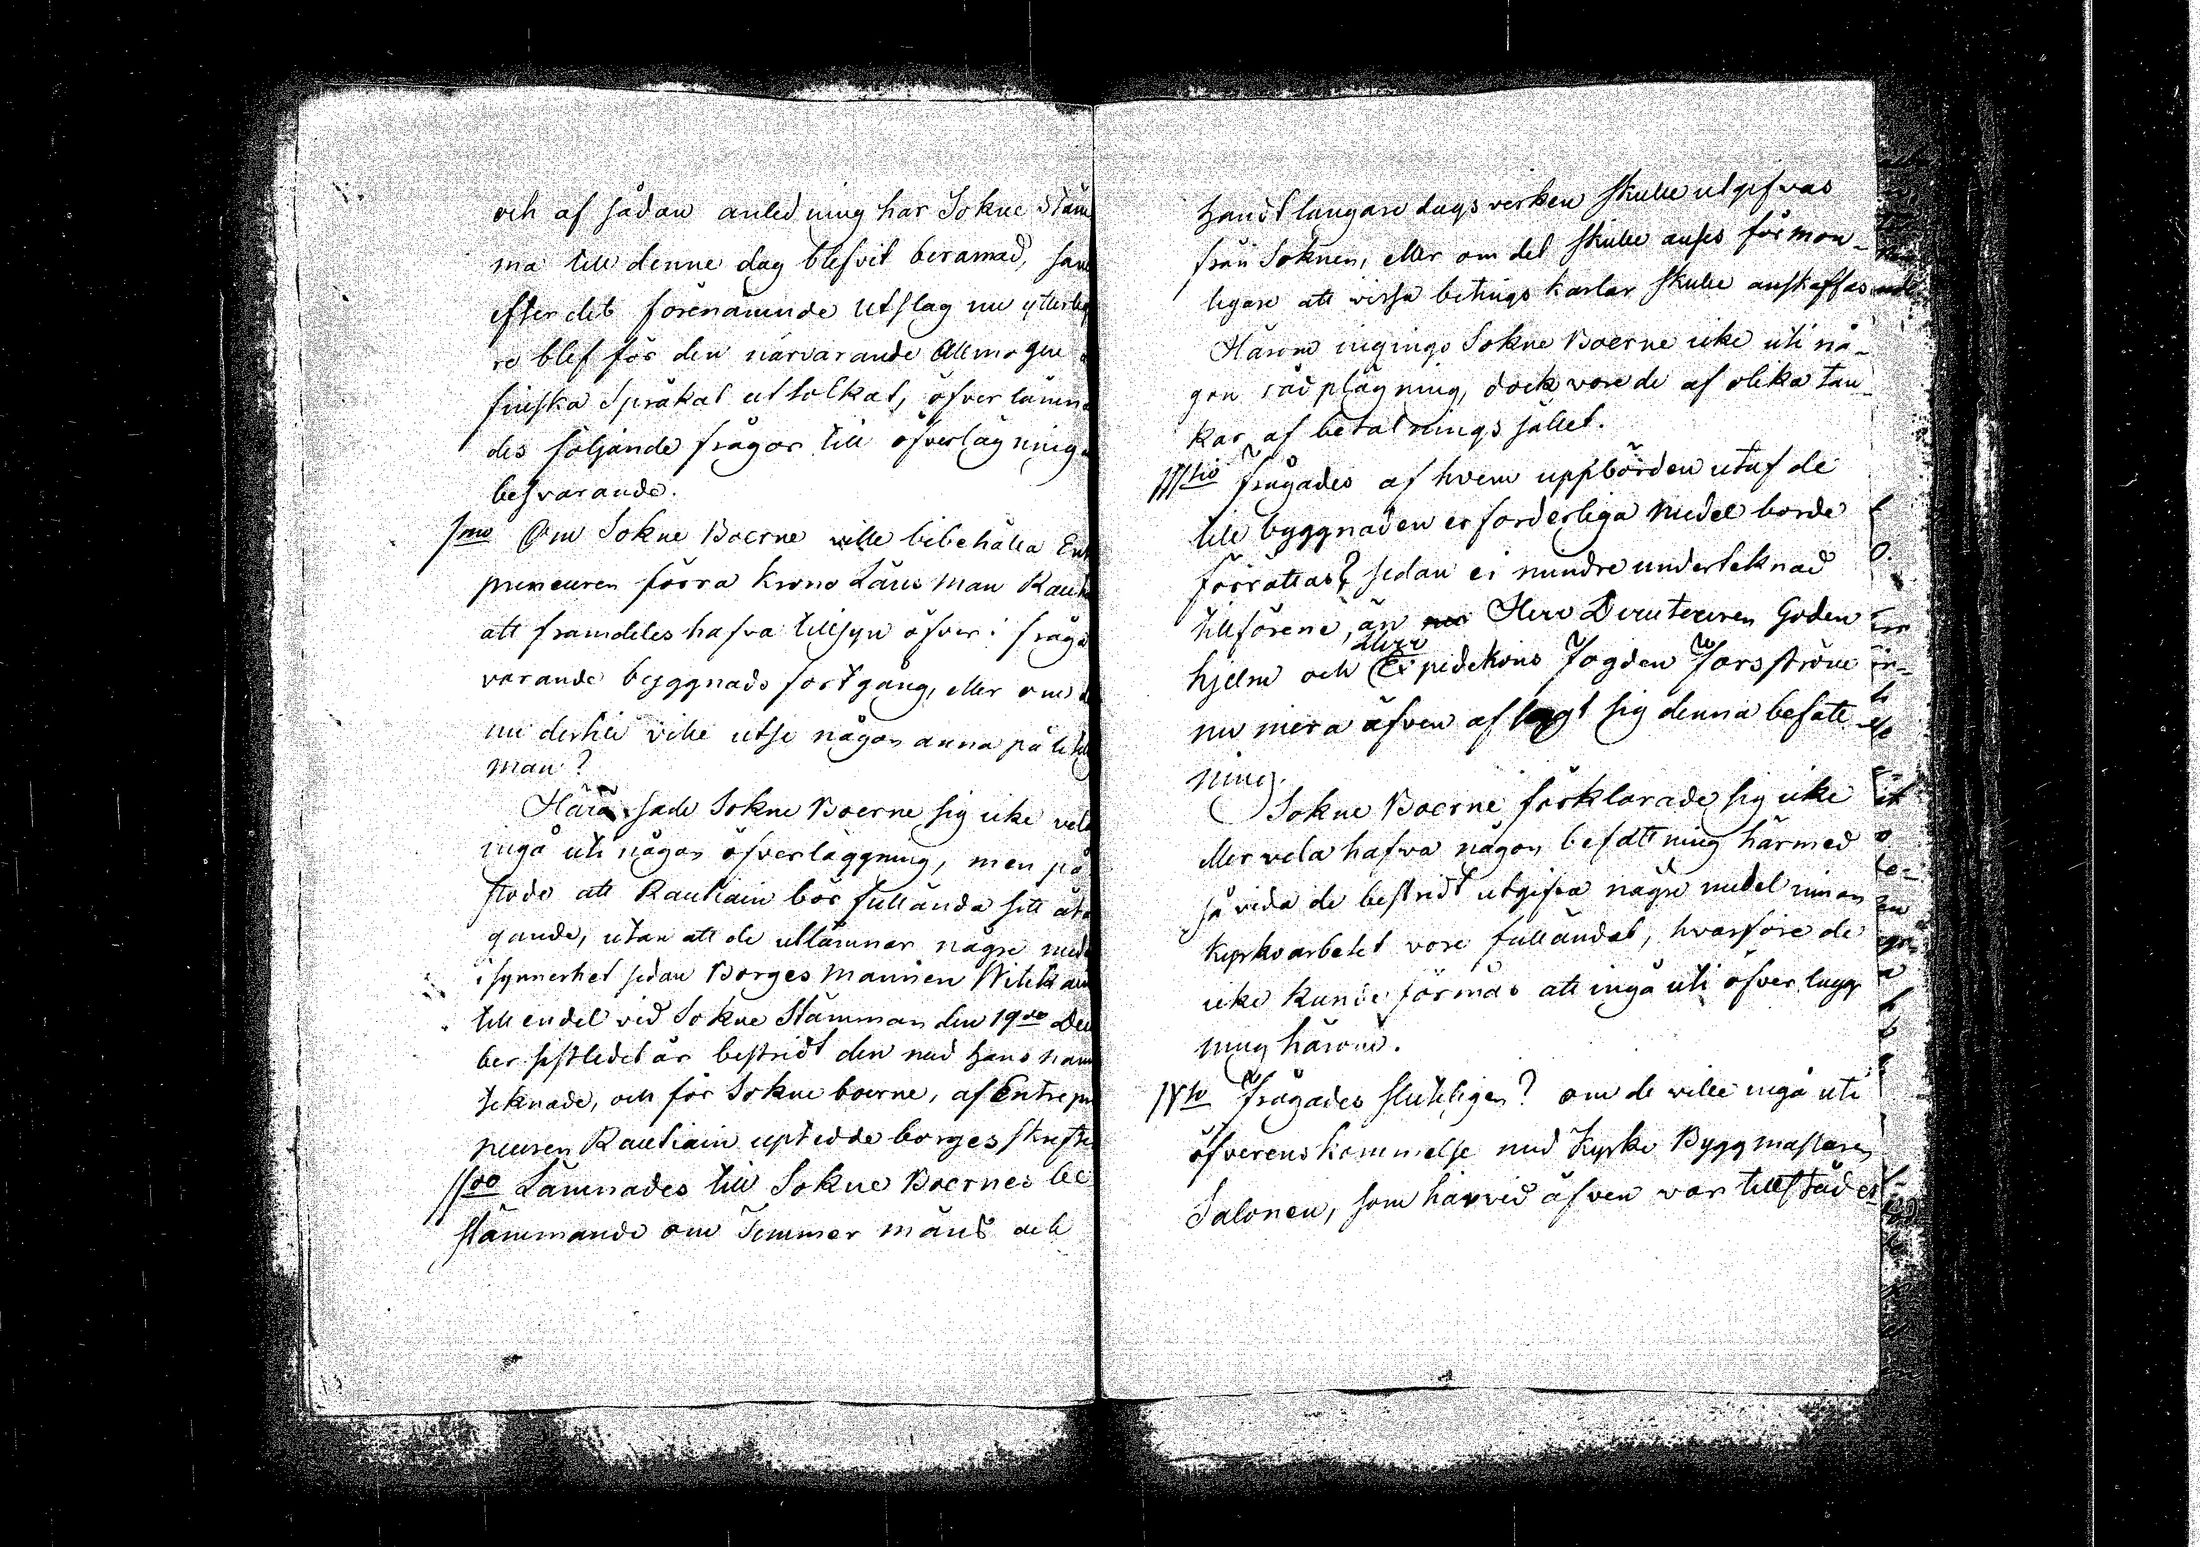 och af sådan anledning har Sokne Stäm
ma till denne dag blefvit beramad, sam
efter det förenämnde Utslag nu ytterliga
re blef för den närvarande Allmogen
finska Språkat uttolkat, öfver lämna
des följande frågor till öfverlägning
besvarande.
1mo Om Sokne Boerne ville bibehålla Ent
preneuren förra Krono Läns man Rauti
att framdeles hafva tillsyn öfver i fråga
varande byggnads fortgång, eller om
nu dertill ville utse någon anna pålitlig
man?
Härå sade Sokne Boerne sig icke vela
ingå uti någon öfverläggning, men på
stodo att Rautiain bör fullända sitt åta
gande, utan att de utlämnar någre med
i synnerhet sedan Borges mannen Witik
till en del vid Sokne Stämman den 19de Dec
ber sistledet år bestridt den med hans nam
teknade, och för Sokne boerne, af Entrepr
neuren Rautiain uptedde borges skrifte
IIdo Lämnades till Sokne Boernes be
stämmande om Timmer mäns och
Handtlangare dagsverken skulle utgifvas
från Soknen, eller om det skulle anses förmon-
ligare att vissa betings karlar skulle anskaffas
Härom ingingo Sokne Boerne icke uti nå-
gon rådplägning, dock vore de af olika tan
kar af betalnings sättet.
IIItio frågades af hvem uppbörden utaf de
till byggnaden erforderliga medel borde
förrättas? sedan ei mindre underteknad
tillförene, än Herr Directeuren Goden
Herr
hjelm och Expeditions Fogden Forsström
nu mera äfven aflagt sig denna befatt
ning.
Sokne Boerne förklarade sig icke
eller vela hafva någon befattning härmed
så vida de bestridt utgifva någre medel innan
kyrkoarbetet vore fulländat, hvarföre de
icke kunde förmås att ingå uti öfver lägg
ning härom.
IVto Frågades slutligen? om de ville ingå uti
öfverenskommelse med Kyrko Byggmästaren
Salonen, som härvid äfven var tillstädes